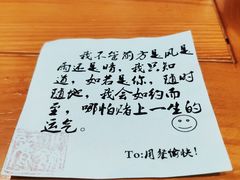 我不管前方是风是
雨还是晴，我只知
道，如若是你，随时
随地，我会如约而
至，哪怕赌上一生的
运气。
To:用餐愉快！